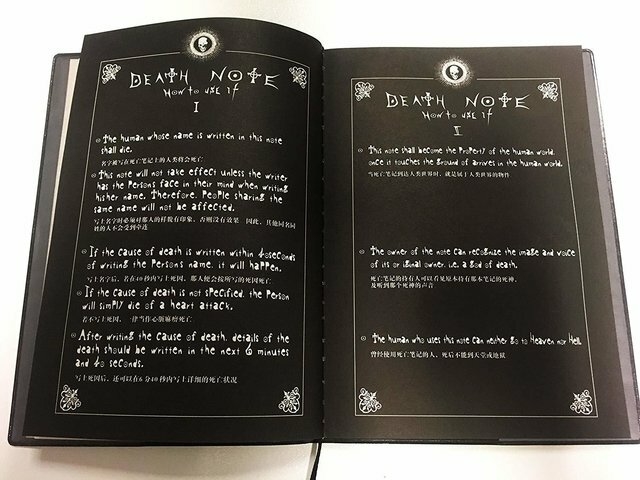 DEATH NOTE
HOW TO USE IT
I
The human whose name is written in this note
shall die.
名字被写在死亡笔记上的人类将会死亡
This note will not take effect unless the writer
has the persons face in their mind when writing
hisher name. Therefore, people sharing the
same name will not be affected.
写上名字时必须对那人的样貌有印象，否则没有效果，因此，其他同名同
姓的人不会受到牵连
If the cause of death is written within 40seconds
of writing the persons name, it will happen.
写上名字后，若在40秒内写上死因，那人便会按所写的死因死亡
If the cause of death is not specified, the person
will simply die of a heart attack.
若不写上死因，一律当作心脏麻痹死亡
After writing the cause of death, details of the
death should be written in the next 6 minutes
and 40 seconds.
写上死因后，还可以在6分40秒内写上详细的死亡状况
DEATH NOTE
HOW TO USE IT
II
This note shall become the property of the human world,
once it touches the ground of arrives in the human world.
当死亡笔记到达人类世界时，就是属于人类世界的物件
The owner of the note can recognize the image and voice
of its or iginal owner, i.e. a god of death.
死亡笔记的持有人可以看见原本持有那本笔记的死神，
及听到那个死神的声音
The human who uses this note can neither go to Heaven nor Hell.
曾经使用死亡笔记的人，死后不能到天堂或地狱